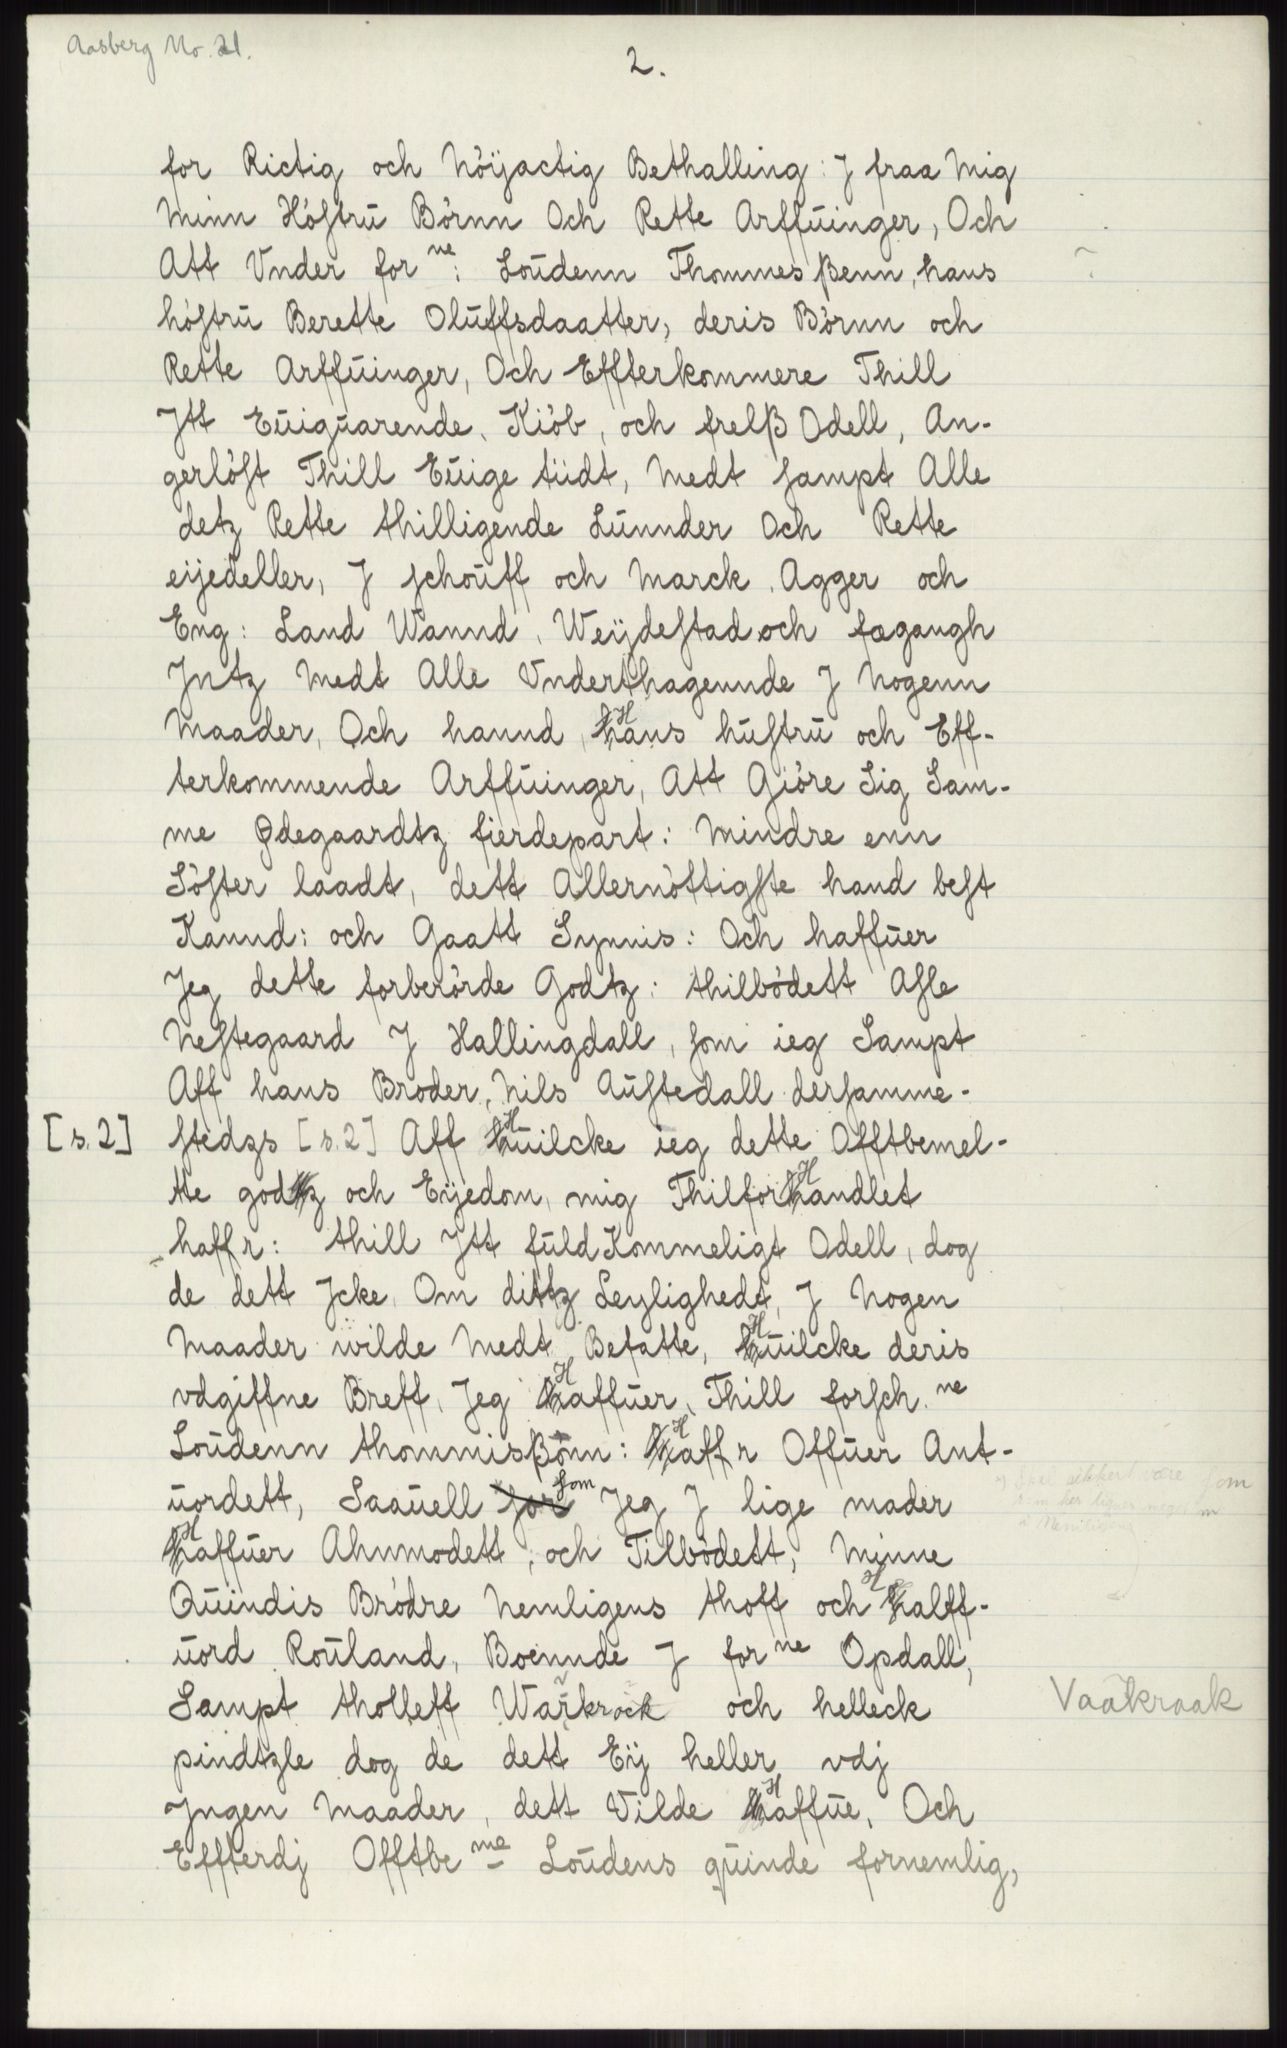 Aasberg No. 21.
2.
for Rictig och Nöÿactig Bethalling: J fraa Mig
Minn Höstru Börnn Och Rette Arffuinger, Och
Att Vnder for ne: Loudenn Thommes ßenn, hans
höstru Berette Oluffsdaatter, deris Börnn och
Rette Arffuinger, Och Effterkommere Thill
Jtt Euiguarende, Kiöb, och frelß Odell, An-
gerlöst Thill Euige tiidt, Medt sampt Alle
detz Rette thilligende Lunnder Och Rette
eijedeller, J schouff och Marck, Agger och
Eng: Land Wannd, Weÿdestad och fægangh
Jntz Medt Alle Vnderthagennde J Nogenn
Maader, Och hannd, Hans hustru och Eff-
terkommende Arffuinger, Att Giöre Sig Sam-
me Ødegaardtz fierdepart: Mindre enn
Söster laadt, dett Allernöttigste hand best
Kannd: och Gaatt Synnis: Och haffuer
Jeg dette forberörde Godtz: thilbödett Asle
Nestegaard J Hallingdall, som ieg Sampt
Aff hans Broder, Nils Austedall dersamme-
[s. 2] stedzs [s. 2] Aff Huilcke ieg dette Offtbemel-
tte godtz och Eÿedom, mig ThilforHandlet
haffr: thill Jtt fuldKommeligt Odell, dog
de dett Jcke, Om dittz Leylighedt, J Nogen
Maader wilde Medt Befatte, Huilcke deris
vdgiffne Breff, Jeg Haffuer, Thill forsch. ne
Loudenn thommisßönn: Haffr Offuer Ant-
uordett, Saauell som Jeg J lige mader
Haffuer Ahnmodett, och Tilbödett, Minne
Quindis Brödre Nemligens thoff och Halff-
uord Rouland, Boennde J for ne Opdall,
Sampt tholleff Warkrock och helleck Vaakraak
pindtzle dog de dett Eÿ heller, vdj
Jngen Maader, dett Vilde Haffue, Och
Effterdj Offtbe me Loudens quinde fornemlig,